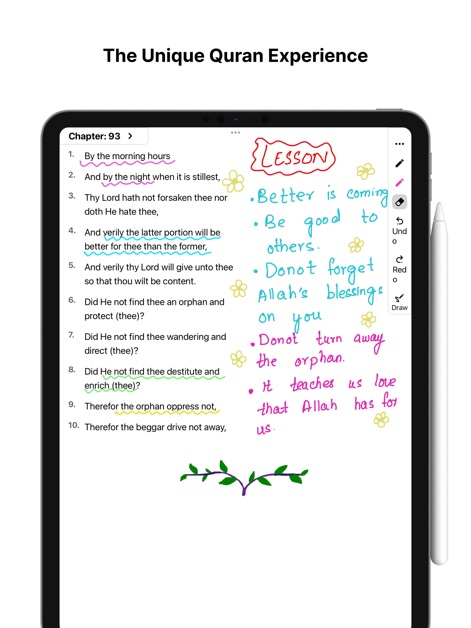 The Unique Quran Experience
Chapter: 93 >
1. By the morning hours
2. And by the night when it is stillest,
3. Thy Lord hath not forsaken thee nor
doth He hate thee,
4. And verily the latter portion will be
better for thee than the former,
5. And verily thy Lord will give unto thee
so that thou wilt be content.
6. Did He not find thee an orphan and
protect (thee)?
7. Did He not find thee wandering and
direct (thee)?
8. Did He not find thee destitute and
enrich (thee)?
9. Therefor the orphan oppress not,
10. Therefor the beggar drive not away,
LESSON
• Better is coming
• Be good to
others.
• Donot forget
Allah's blessings
on you
• Donot turn away
the orphan.
• It teaches us love
that Allah has for
us.
Und
o
Red
o
Draw